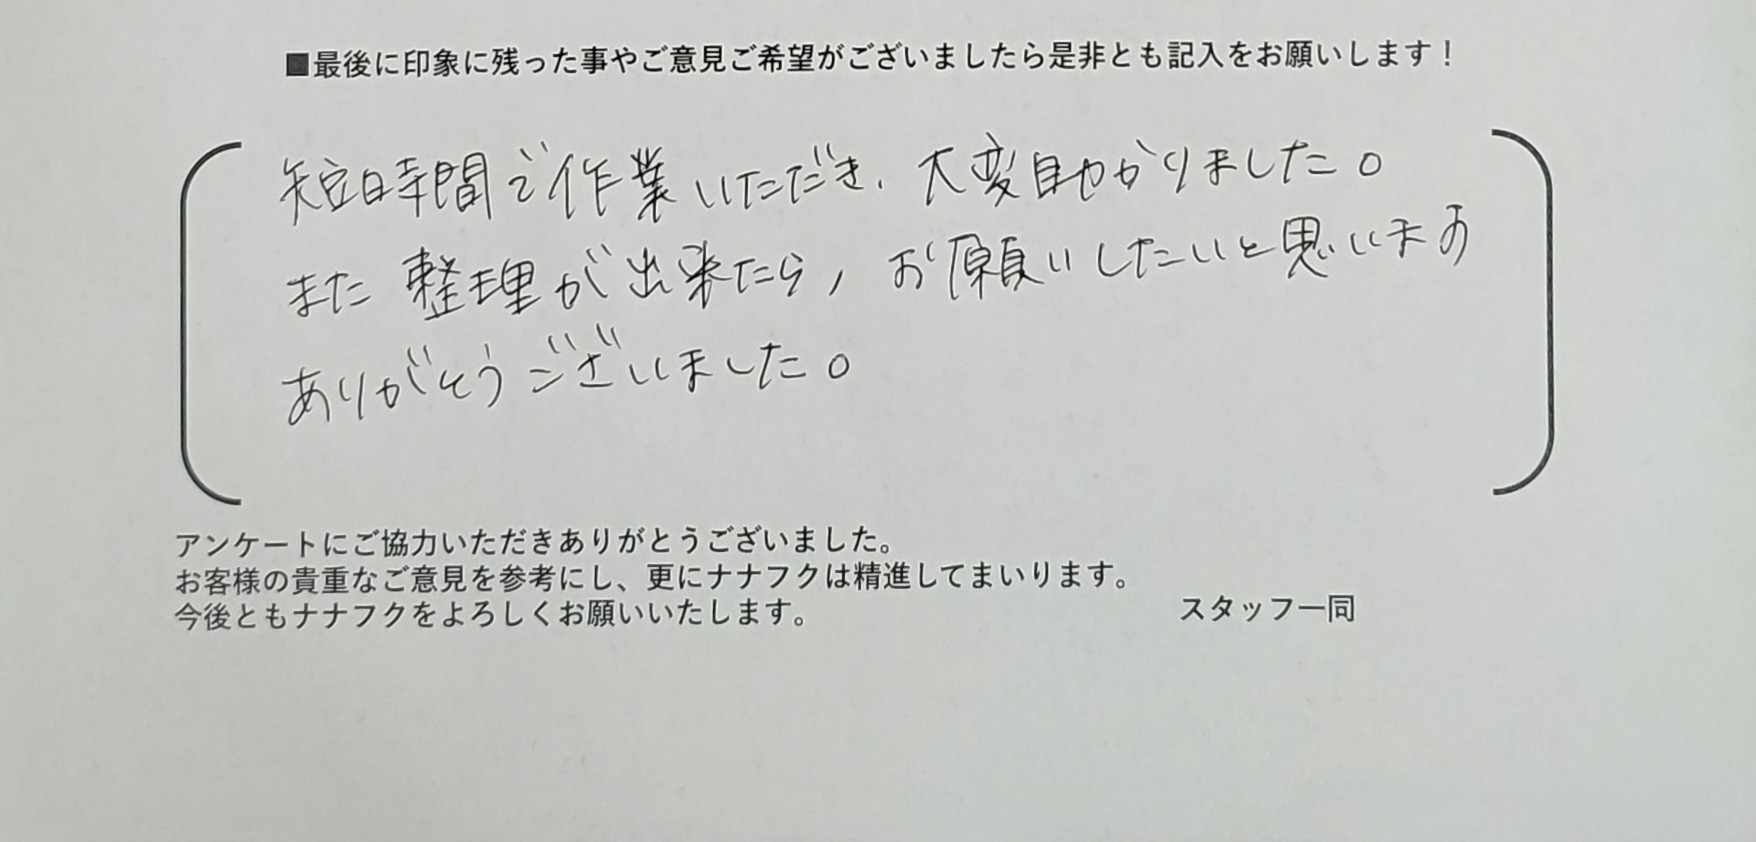 ■最後に印象に残った事やご意見ご希望がございましたら是非とも記入をお願いします！
短時間で作業いただき、大変助かりました。
また整理が出来たら、お願いしたいと思います
ありがとうございました。
アンケートにご協力いただきありがとうございました。
お客様の貴重なご意見を参考にし、更にナナフクは精進してまいります。
今後ともナナフクをよろしくお願いいたします。 スタッフ一同